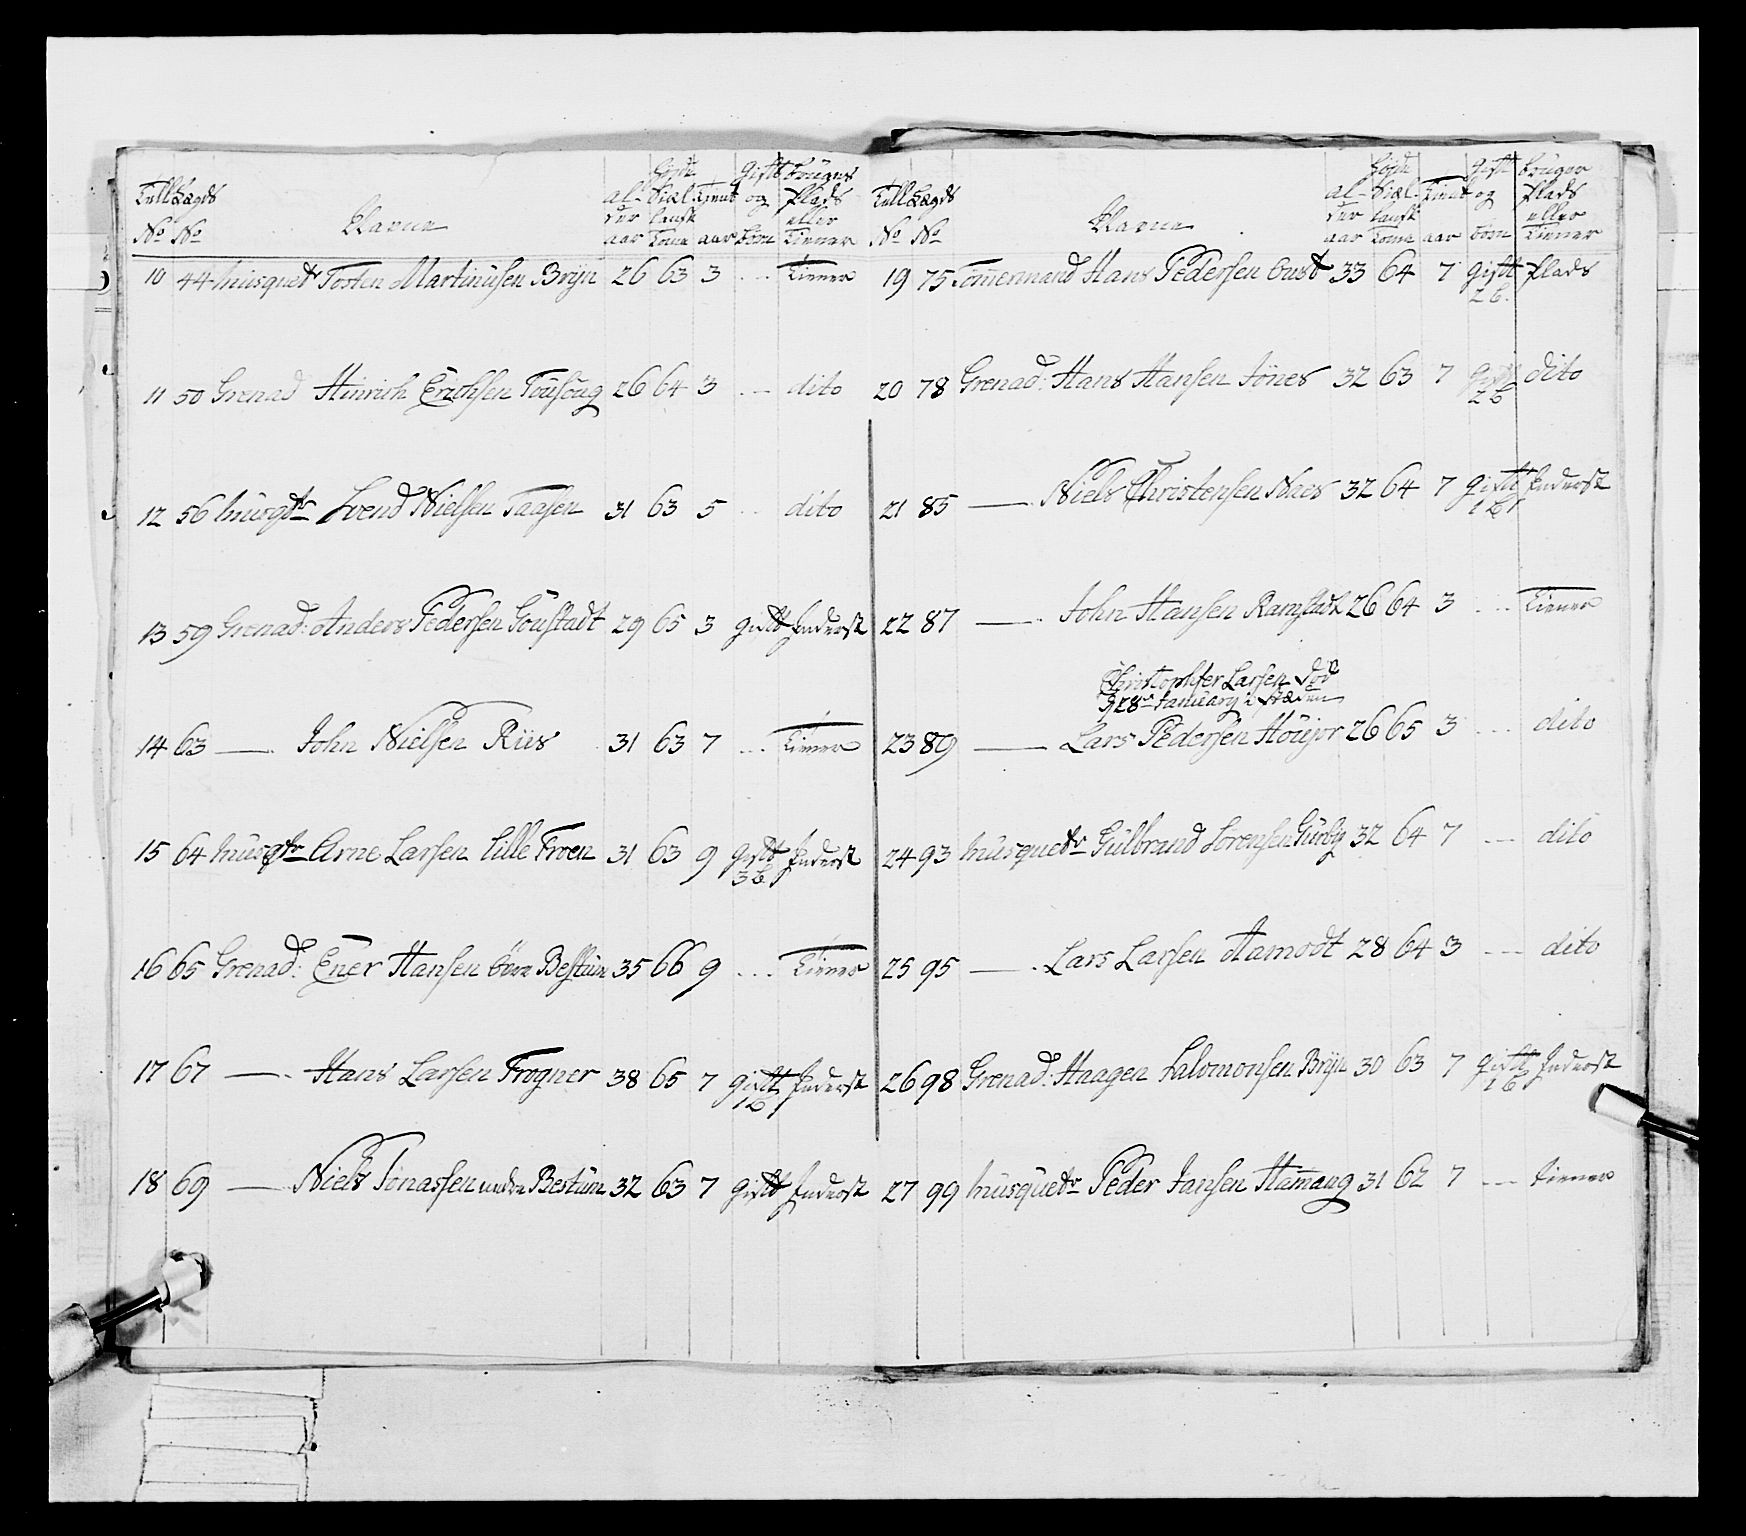 Rull No Lægds No Navne Alder aar Høyde Siælansk Tome Tient aar Gift og børn bruger Plads eller Tiener
10 44 Musquetr Tosten Martinusen Brÿn 26 63 3 ... Tiener
11 50 Grenad Hinrich Erichsen 26 64 3 ... dito
12 56 Musqtr Svend Nielsen Taasen 31 63 5 ... dito
13 59 Grenad: Anders Pedersen Goustadt 29 65 3 gift Inderst
14 63 — John Nielsen Riis 31 63 7 ... Tiener
15 64 Musqtr Arne Larsen Lille Froen 31 63 9 gift 3 b Inderst
16 65 Grenad: Ener Hansen övre Bestum 35 66 9 ... Tiener
17 67 — Hans Larsen Frogner 38 65 7 gift 1 b Inderst
18 69 — Niels Jonassen nedre Bestum 32 63 7 gift Inderst
Rull No Lægds No Navne Alder aar Høyde Siælansk Tome Tient aar Gift og børn bruger Plads eller Tiener
19 75 Tömermand Hans Pedersen Oust 33 64 7 gift 2 b. Plads
20 78 Grenad: Hans Hansen Jönes 32 63 7 Gift 2 b dito
21 85 — Niels Christensen Naes 32 64 7 gift 1 b Inderst
22 87 — John Hansen Ramstadt 26 64 3 ... Tiener
Christopher Larsen död
d 28de January i Stæden
23 89 — Lars Pedersen 26 65 3 ... dito
24 93 Musquetr Gulbrand Sorensen 32 64 7 ... dito
25 95 — Lars Larsen Aamodt 28 64 3 ... dito
26 98 Grenad: Haagen Salomonsen Brÿn 30 63 7 gift 1 b Inderst
27 99 Musquetr Peder Jansen Hamang 31 62 7 ... tiener